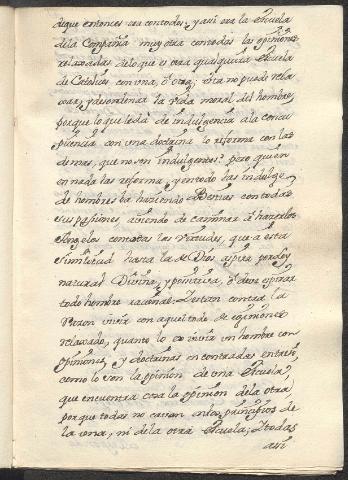 dique entonces con todos, y asi era la Escuela
de la Compañia muy otra con todas las opiniones
relaxadas de lo que es otra qualquiera Escuela
de Catolicos con una, ò otra; esta no puede rela
xar, y desordenar la vida moral del hombre,
porque lo que le dà de indulgencia a la concu
piscencia con una doctrina lo reforma con las
demas, que no son indulgentes: pero quien
en nada las reforma, y en todo las indulge,
de hombres ba haziendo Bestias con todas
sus pasiones, aviendo de caminar à hazerlos
Angelos con todas las virtudes, que a esta
similitud hasta la de Dios aspira por Ley
natural Divina, y positiva, ò debe aspirar
todo hombre racional: Y estan contra la
razon vivir con aquel todo de opiniones
relaxado, quanto lo es vivir un hombre con
opiniones, y doctrinas encontradas entre si
como lo son la opinion de una Escuela,
que encuentra con la opinion de la otra
porque todas no caven en los principios de
la una, ni de la otra Escuela; Y todas
asi